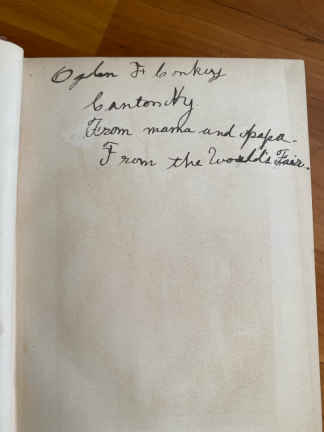 Ogden F Conkey
Canton Ny
From mama and papa.
From the World's Fair.